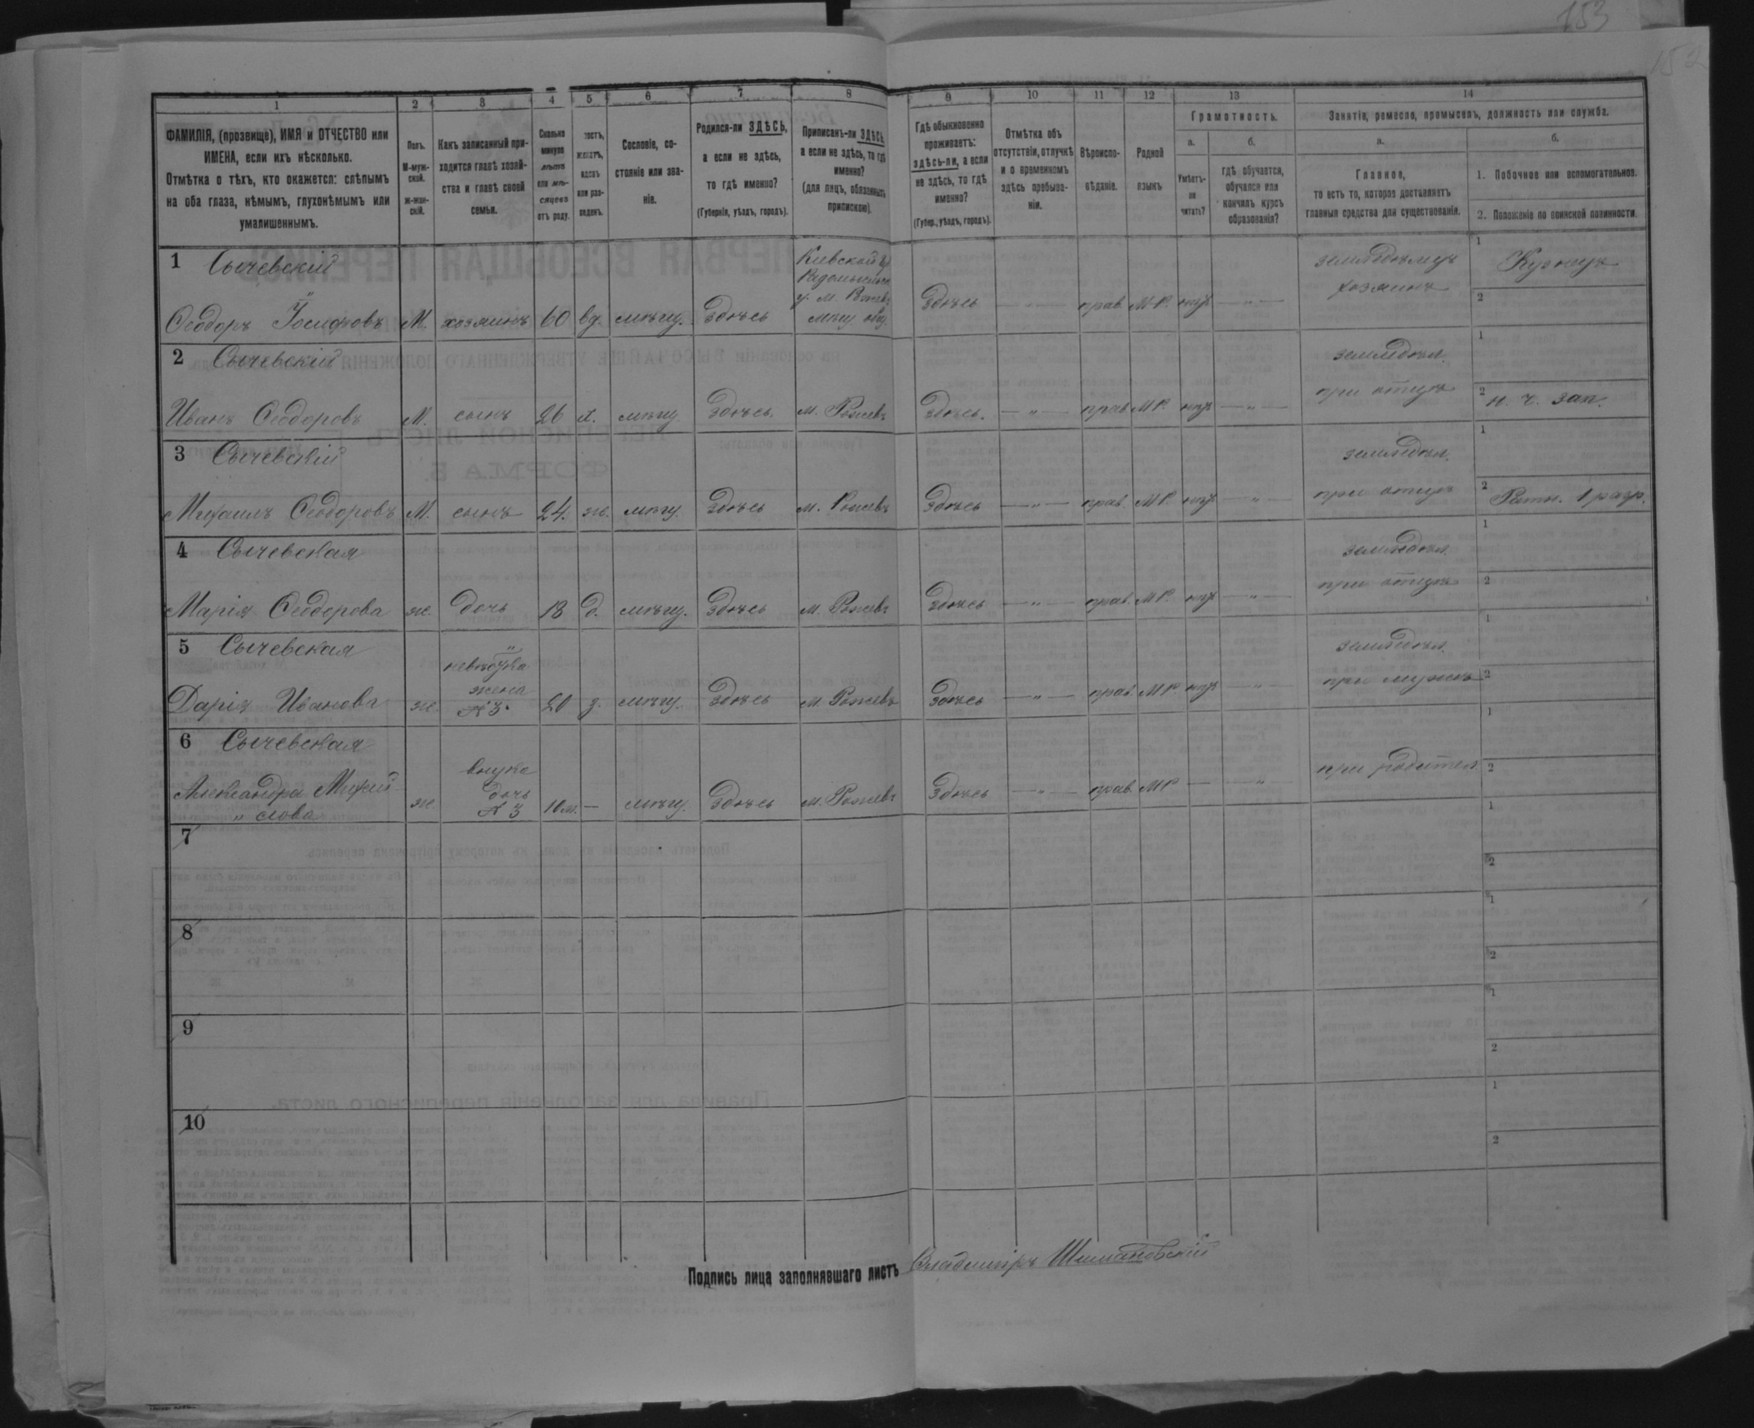 153
152
1
2
3
4
5
6
7
8
9
10
11
12
13
14
ФАМИЛІЯ, (прозвище), ИМЯ и ОТЧЕСТВО или
ИМЕНА, если ихъ нѣсколько.
Отмѣтка о тѣхъ, кто окажется: слѣпымъ
на оба глаза, нѣмымъ, глухонѣмымъ или
умалишеннымъ.
Полъ.
М-муж-
ской.
Ж-жен-
скій.
Какъ записанный при-
ходится главѣ хозяй-
ства и главѣ своей
семьи.
Сколько
минуло
лѣтъ
или мѣ-
сяцевъ
отъ роду.
Холостъ,
женатъ,
вдовъ
или раз-
веденъ.
Сословіе, со-
стояніе или зва-
ніе.
Родился-ли ЗДѢСЬ,
а если не здѣсь,
то гдѣ именно?
(Губернія, уѣздъ, городъ).
Приписанъ-ли ЗДѢСЬ
а если не здѣсь, то гдѣ
именно?
(для лицъ, обязанныхъ
припискою).
Гдѣ обыкновенно
проживаетъ:
здѣсь-ли, а если
не здѣсь, то гдѣ
именно?
(Губер., уѣздъ, городъ).
Отмѣтка объ
отсутствіи, отлучкѣ
и о временномъ
здѣсь пребыва-
ніи.
Вѣроиспо-
вѣданіе.
Родной
языкъ
Грамотность.
а.
Умѣетъ-
ли
читать?
б.
гдѣ обучается,
обучался или
кончилъ курсъ
образованія?
Занятіе, ремесло, промыселъ, должность или служба.
а.
Главное,
то есть то, которое доставляетъ
главныя средства для существованія.
б.
1. Побочное или вспомогательное.
2. Положеніе по воинской повинности.
1 Сычевскій
Ѳеодоръ Іосифовъ М. хозяинъ 60 вд. мѣщ. Здѣсь
Кіевской г.
Радомысльск.
у. м. Рожевъ
мѣщ. общ.
Здѣсь — прав. М.Р. нѣтъ —"—
земледѣлецъ
хозяинъ
1 Кузнецъ
2
2 Сычевскій
Иванъ Ѳеодоровъ М. сынъ 26 х. мѣщ. Здѣсь м. Рожевъ Здѣсь. —"— прав. М.Р. нѣтъ —"—
земледѣл.
при отцѣ
1
2 н. ч. зап.
3 Сычевскій
Михаилъ Ѳеодоровъ М. сынъ 24. ж. мѣщ. Здѣсь м. Рожевъ Здѣсь —"— прав. М.Р. нѣтъ —"—
земледѣл.
при отцѣ
1
2 Ратн. 1 разр.
4 Сычевская
Марія Ѳеодорова ж. дочь 18 д. мѣщ. Здѣсь м. Рожевъ Здѣсь —"— прав. М.Р. нѣтъ —"—
земледѣл.
при отцѣ
1
2
5 Сычевская
Дарія Иванова ж.
невѣстка
жена
№ 3.
20 з. мѣщ. Здѣсь м. Рожевъ Здѣсь —"— прав. М.Р. нѣтъ —"—
земледѣл.
при мужѣ
1
2
6 Сычевская
Александра Михай-
" лова ж.
внука
дочь
№ 3
10 м. — мѣщ. Здѣсь м. Рожевъ Здѣсь —"— прав. М.Р. — —"—
при родител.
1
2
7
1
2
8
1
2
9
1
2
10
1
2
Подпись лица заполнявшаго листъ Владиміръ Шимановскій